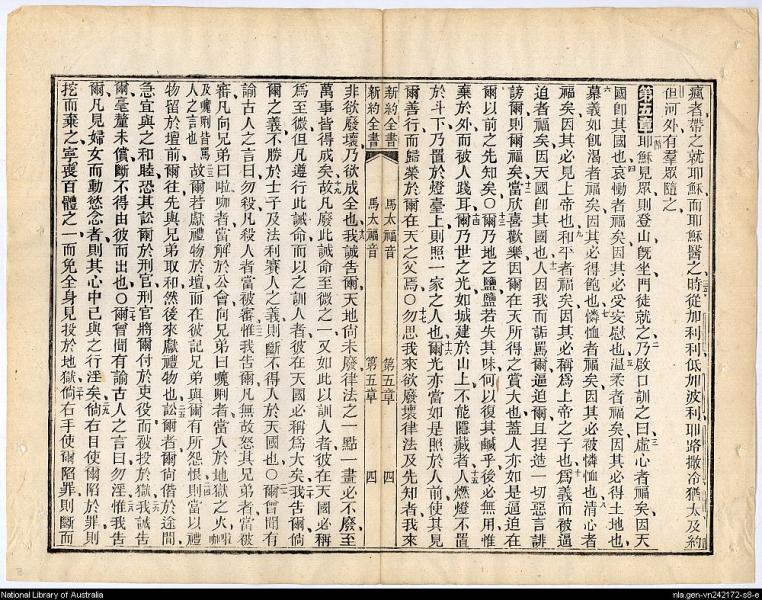 瘋者帶之就耶穌而耶穌醫之時從加利利低加波利耶路撒冷猶太及約
但河外有羣眾隨之
第五章耶穌見眾則登山旣坐門徒就之乃啟口訓之曰虛心者福矣因天
國卽其國也哀慟者福矣因其必受安慰也温柔者福矣因其必得土地也
慕義如飢渴者福矣因其必得飽也憐恤者福矣因其必被憐恤也清心者
福矣因其必見上帝也和平者福矣因其必稱爲上帝之子也爲義而被逼
迫者福矣因天國卽其國也人因我而詬罵爾逼迫爾且捏造一切惡言誹
謗爾則爾福矣當欣喜歡樂因爾在天所得之賞大也蓋人亦如是逼迫在
爾以前之先知矣〇爾乃地之鹽鹽若失其味何以復其鹹乎後必無用惟
棄於外而被人踐耳爾乃世之光如城建於山上不能隱藏者人燃燈不置
於斗下乃置於燈臺上則照一家之人也爾光亦當如是照於人前使其見
爾善行而歸榮於爾在天之父焉〇勿思我來欲廢壞律法及先知者我來
新約全書 馬太福音 第五章 四
新約全書 馬太福音 第五章 四
非欲廢壞乃欲成全也我誠告爾天地尙未廢律法之一點一畫必不廢至
萬事皆得成矣故凡廢此誡命至微之一又如此以訓人者彼在天國必稱
爲至微但凡遵行此誡命而以之訓人者彼在天國必稱爲大矣我告爾倘
爾之義不勝於士子及法利賽人之義則斷不得入於天國也〇爾曾聞有
諭古人之言曰勿殺凡殺人者當被審惟我告爾凡無故怒其兄弟者當被
審凡向兄弟曰啦咖者當解於公會向兄弟曰嚜唎者當入於地獄之火
及嚜唎皆罵人之言也故爾若獻禮物於壇而在彼記兄弟與爾有所怨恨則當以禮
物留於壇前爾往先與兄弟取和然後來獻禮物也訟爾者爾尙偕於途間
急宜與之和睦恐其訟爾於刑官刑官將爾付於吏役而被投於獄我誠告
爾毫釐未償斷不得由彼而出也〇爾曾聞有諭古人之言曰勿淫惟我告
爾凡見婦女而動慾念者則其心中已與之行淫矣倘右目使爾陷於罪則
挖而棄之寧喪百體之一而免全身見投於地獄倘右手使爾陷罪則斷而
National Library of Australia
nla.gen-vn242172-s8-e